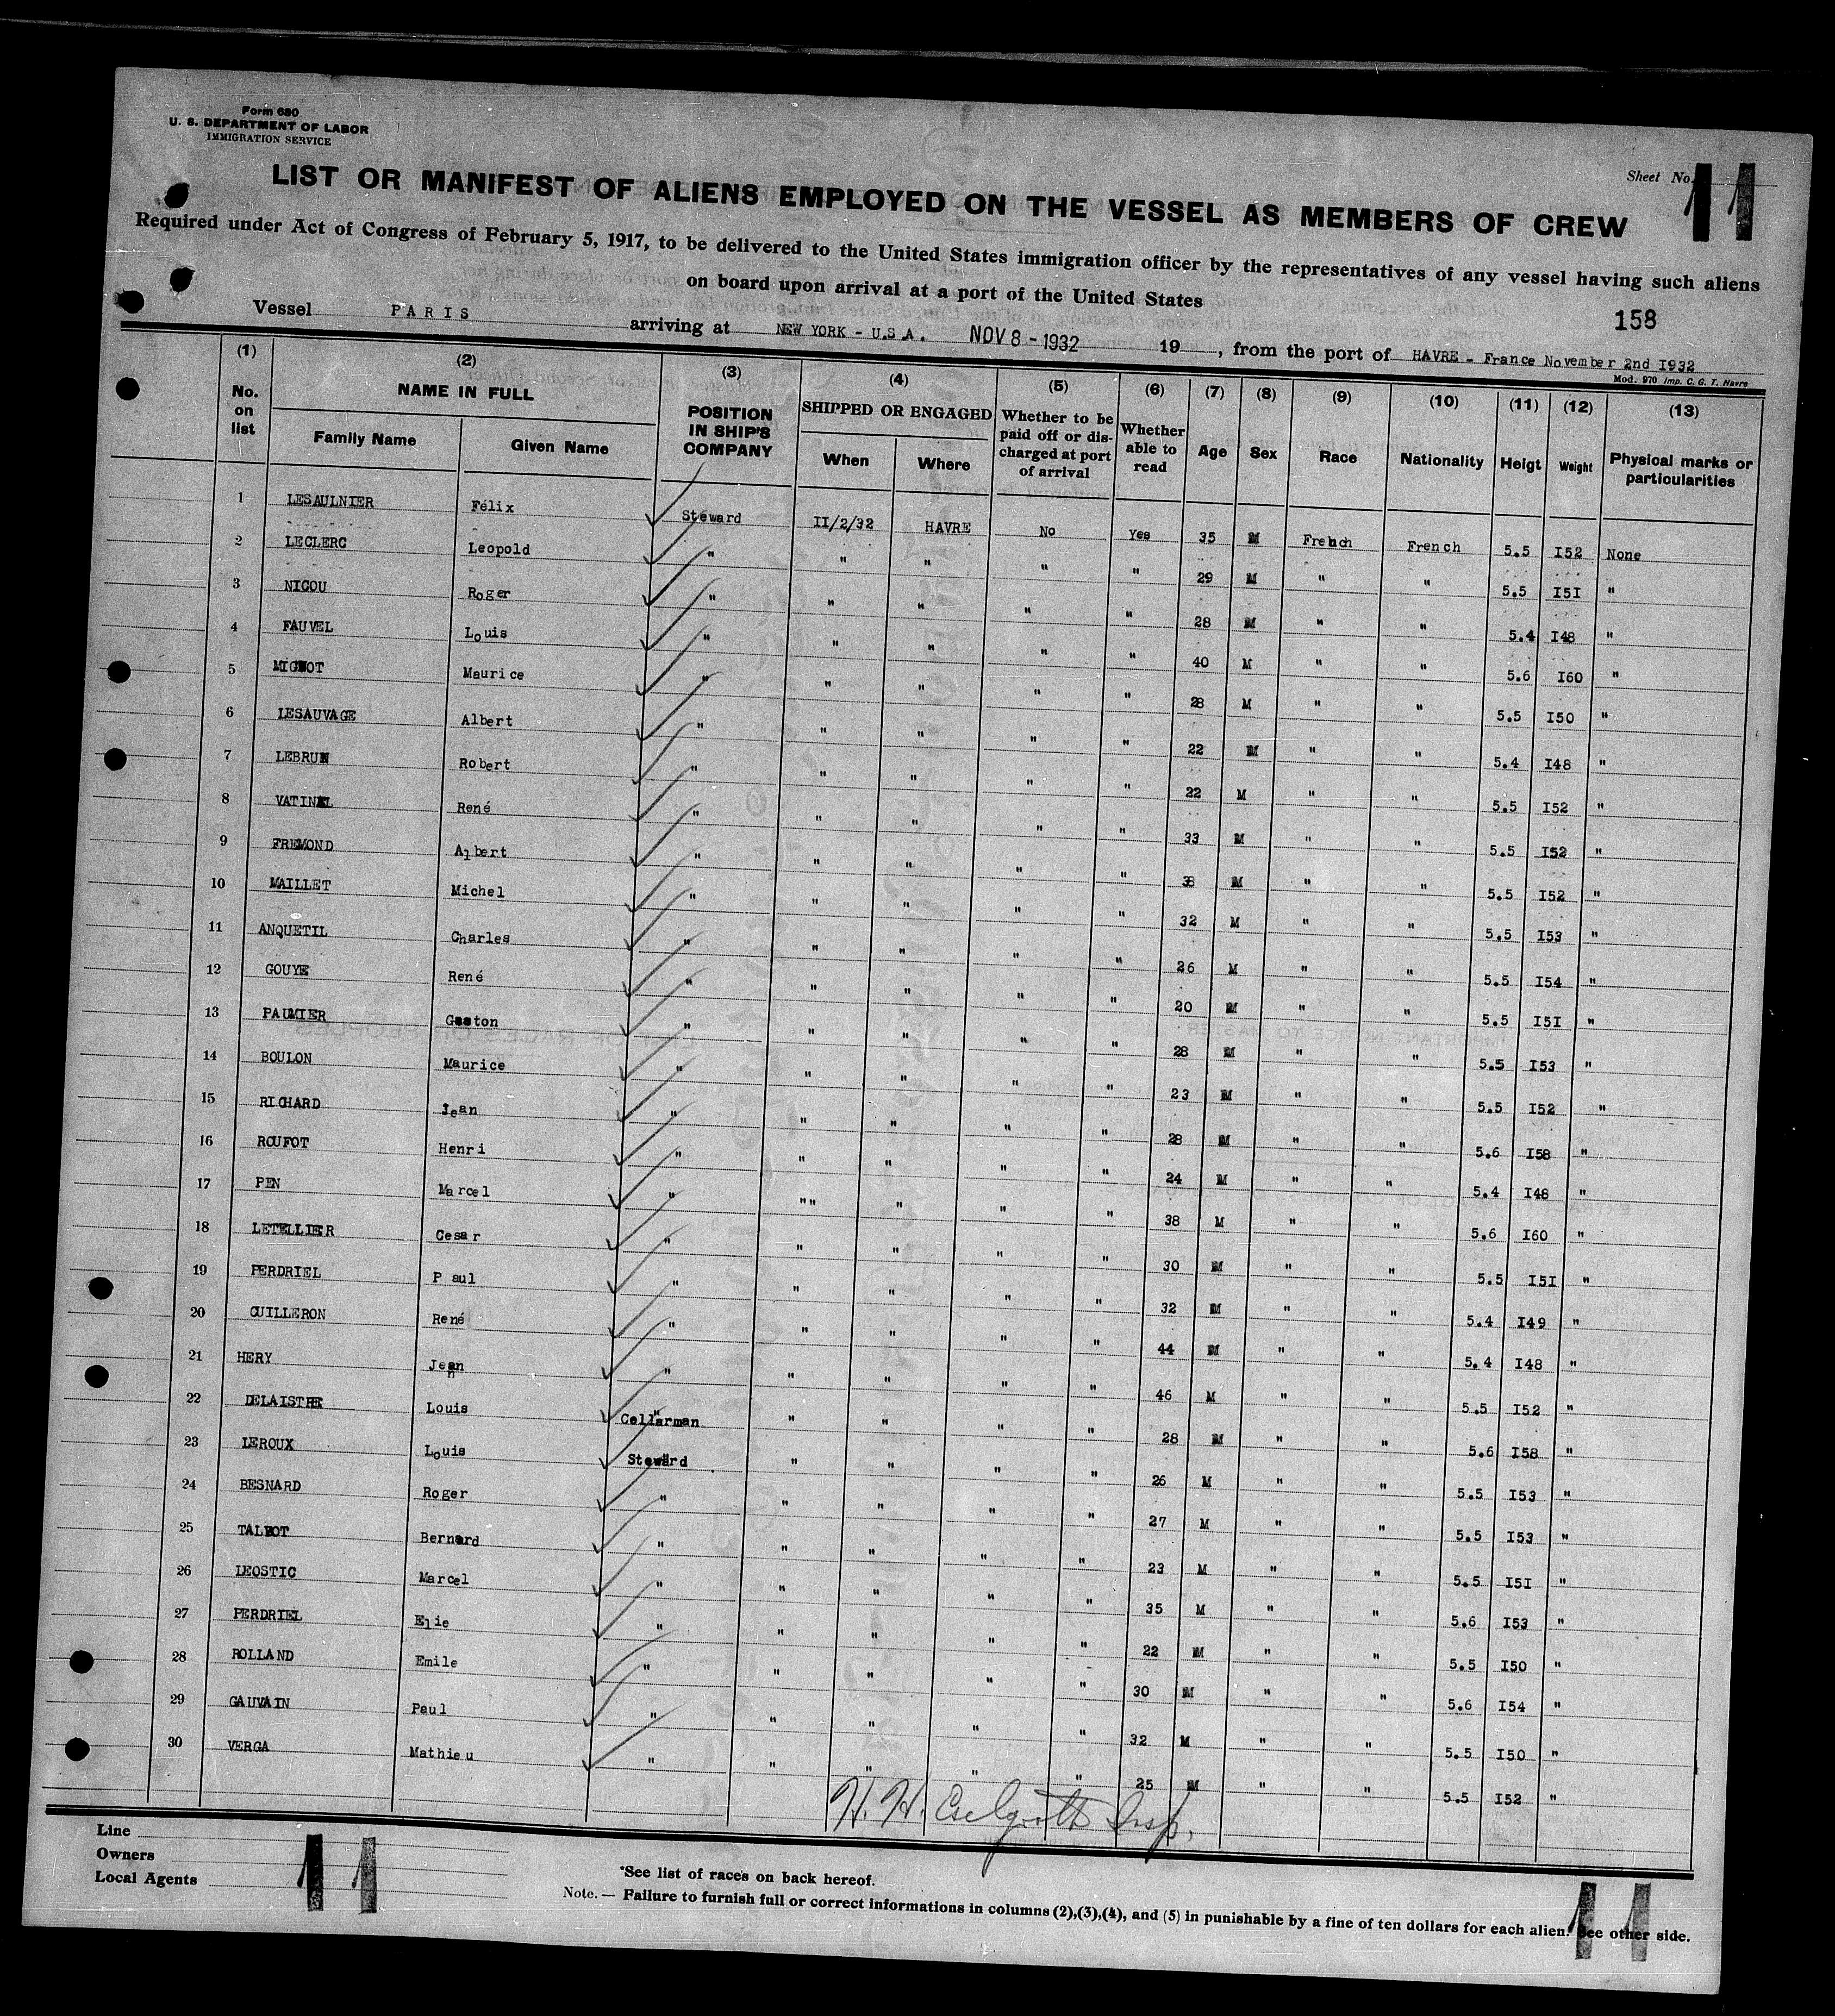 Form 680
U. S. DEPARTMENT OF LABOR
IMMIGRATION SERVICE
Sheet No. 11
LIST OR MANIFEST OF ALIENS EMPLOYED ON THE VESSEL AS MEMBERS OF CREW
Required under Act of Congress of February 5, 1917, to be delivered to the United States immigration officer by the representatives of any vessel having such aliens
on board upon arrival at a port of the United States
158
Vessel PARIS arriving at NEW YORK - U.S.A. NOV 8 - 1932 19 , from the port of HAVRE - France November 2nd I932
Mod. 970 Imp. C. G. T. Havre
(1) (2) (3) (4) (5) (6) (7) (8) (9) (10) (11) (12) (13)
No. on list NAME IN FULL Family Name Given Name POSITION IN SHIP'S COMPANY SHIPPED OR ENGAGED When Where Whether to be paid off or discharged at port of arrival Whether able to read Age Sex Race Nationality Heigt Weight Physical marks or particularities
1 LESAULNIER Félix Steward II/2/32 HAVRE No Yes 35 M French French 5.5 I52 None
2 LECLERC Leopold " " " " " 29 M " " 5.5 I5I "
3 NICOU Roger " " " " " 28 M " " 5.4 I48 "
4 FAUVEL Louis " " " " " 40 M " " 5.6 I60 "
5 MIGNOT Maurice " " " " " 28 M " " 5.5 I50 "
6 LESAUVAGE Albert " " " " " 22 M " " 5.4 I48 "
7 LEBRUN Robert " " " " " 22 M " " 5.5 I52 "
8 VATINEL René " " " " " 33 M " " 5.5 I52 "
9 FREMOND Albert " " " " " 38 M " " 5.5 I52 "
10 MAILLET Michel " " " " " 32 M " " 5.5 I53 "
11 ANQUETIL Charles " " " " " 26 M " " 5.5 I54 "
12 GOUYE René " " " " " 20 M " " 5.5 I5I "
13 PAUMIER Gaston " " " " " 28 M " " 5.5 I53 "
14 BOULON Maurice " " " " " 23 M " " 5.5 I52 "
15 RICHARD Jean " " " " " 28 M " " 5.6 I58 "
16 ROUFOT Henri " " " " " 24 M " " 5.4 I48 "
17 PEN Marcel " "" " " " 38 M " " 5.6 I60 "
18 LETELLIER Cesar " " " " " 30 M " " 5.5 I5I "
19 PERDRIEL Paul " " " " " 32 M " " 5.4 I49 "
20 GUILLERON René " " " " " 44 M " " 5.4 I48 "
21 HERY Jean " " " " " 46 M " " 5.5 I52 "
22 DELAISTRE Louis Cellarman " " " " 28 M " " 5.6 I58 "
23 LEROUX Louis Steward " " " " 26 M " " 5.5 I53 "
24 BESNARD Roger " " " " " 27 M " " 5.5 I53 "
25 TALBOT Bernard " " " " " 23 M " " 5.5 I5I "
26 LEOSTIC Marcel " " " " " 35 M " " 5.6 I53 "
27 PERDRIEL Elie " " " " " 22 M " " 5.5 I50 "
28 ROLLAND Emile " " " " " 30 M " " 5.6 I54 "
29 GAUVAIN Paul " " " " " 32 M " " 5.5 I50 "
30 VERGA Mathieu " " " " " 25 M " " 5.5 I52 "
H. H. Insp.
Line
Owners
Local Agents
11
*See list of races on back hereof.
Note. — Failure to furnish full or correct informations in columns (2),(3),(4), and (5) in punishable by a fine of ten dollars for each alien. See other side.
11